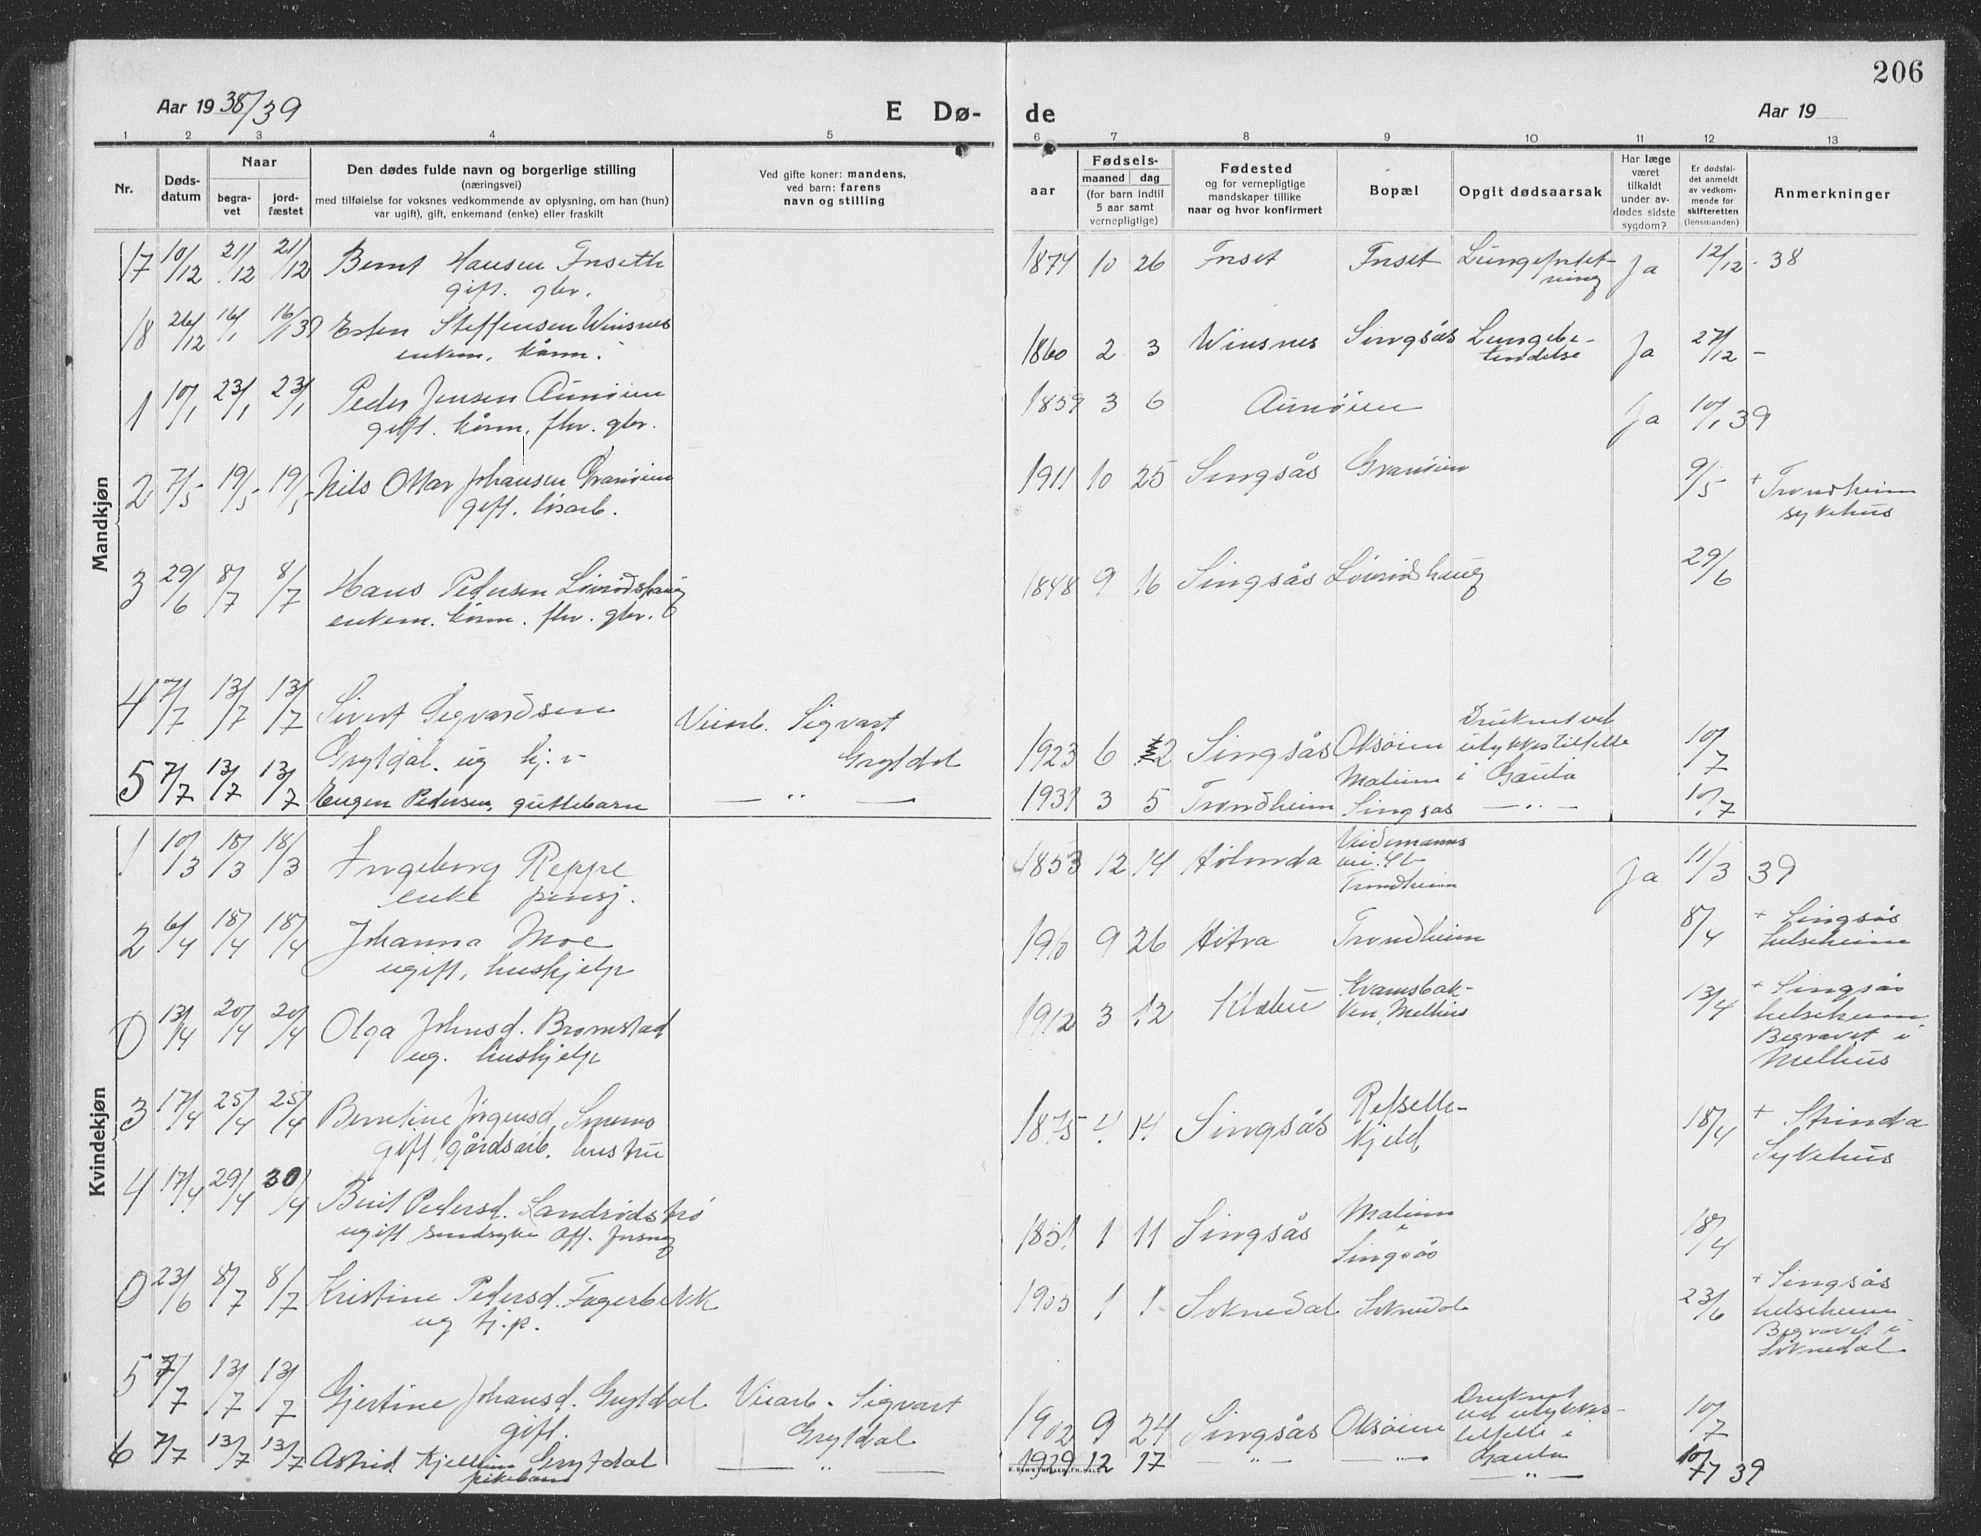 206
Aar 19 38/39
E Dø-
de
Aar 19
1 2 3 4 5 6 7 8 9 10 11 12 13
Nr.
Døds-
datum
Naar
begra-
vet
jord-
fæstet
Den dødes fulde navn og borgerlige stilling
(næringsvei)
med tilføielse for voksnes vedkommende av oplysning, om han (hun)
var ugift), gift, enkemand (enke) eller fraskilt
Ved gifte koner: mandens,
ved barn: farens
navn og stilling
aar
Fødsels-
maaned dag
(for barn indtil
5 aar samt
vernepligtige)
Fødested
og for vernepligtige
mandskaper tillike
naar og hvor konfirmert
Bopæl
Opgit dødsaarsak
Har læge
været
tilkaldt
under av-
dødes sidste
sygdom?
Er dødsfal-
det anmeldt
av vedkom-
mende for
skifteretten
(lensmanden)
Anmerkninger
Mandkjøn
17 10/12 21/12 21/12 Bernt Hansen Frseth 1874 10 26 Frset Frset Lungebetet- Ja 12/12 - 38
gift. gbr. ning
18 26/12 16/1 16/1 39 Esten Steffensen Winsnes 1860 2 3 Winsnes Singsås Lungebe- Ja 27/12 -
enkem. kårm. tendelse
1 10/1 23/1 23/1 Peder Jensen Aunøien 1859 3 6 Aunøien Ja 10/1 39
gift. kårm. fhv. gbr.
2 7/5 19/5 19/5 Nils Ottar Johansen Granøien 1911 10 25 Singsås Granøien 9/5 + Trondheim
gift. løsarb. sykehus
3 29/6 8/7 8/7 Hans Pedersen Løvrødshaug 1848 9 16 Singsås Løvrødshaug 29/6
enkem. kårm. fhv. gbr.
4 7/7 13/7 13/7 Sivert Sigvardsen Veiarb. Sigvart 1923 6 2 Singsås Oksøien Druknet ved 10/7
Gryldal. ug hj. v Gryldal ulykkestilfelle
5 7/7 13/7 13/7 Eugen Pedersen, guttebarn — " — 1931 3 5 Trondheim Malum i Gaula 10/7
Singsås — " —
Kvindekjøn
1 10/3 18/3 18/3 Ingeborg Reppe 1853 12 14 Hølonda Veidemanns Ja 11/3 39
enke pensj. vei. 4b
Trondheim
2 6/4 18/4 18/4 Johanna Moe 1910 9 26 Hitra Trondheim 8/4 + Singsås
ugift, hushjelp helseheim
0 13/4 20/4 20/4 Olga Johnsd. Bromstad 1912 3 12 Klæbu Kvamsbak- 13/4 + Singsås
ug. hushjelp ken, Melhus helseheim
Begravet i
Melhus
3 17/4 25/4 25/4 Berntine Jørgensd. Smemo 1875 4 14 Singsås Refseth- 18/4 + Strinda
gift, gårdsarb. hustru kjeld Sykehus
4 17/4 29/4 30/4 Berit Pedersd. Landrødstrø 1851 1 11 Singsås Malum 18/4
ugift sindsyke off. forsørg i
Singsås
0 23/6 8/7 8/7 Kristine Pedersd. Fagerbekk 1905 1 1 Soknedal Soknedal 23/6 + Singsås
ug tj.p. helseheim
Begravet i
Soknedal
5 7/7 13/7 13/7 Gjertine Johansd. Gryldal Veiarb. Sigvart 1902 9 24 Singsås Oksøien Druknet 10/7
gift. Gryldal ved ulykkes-
tilfelle i
Gaula
6 7/7 13/7 13/7 Astrid Kjellun Gryldal — " — 1929 12 17 — " — — " — — " — 10/7 39
pikebarn